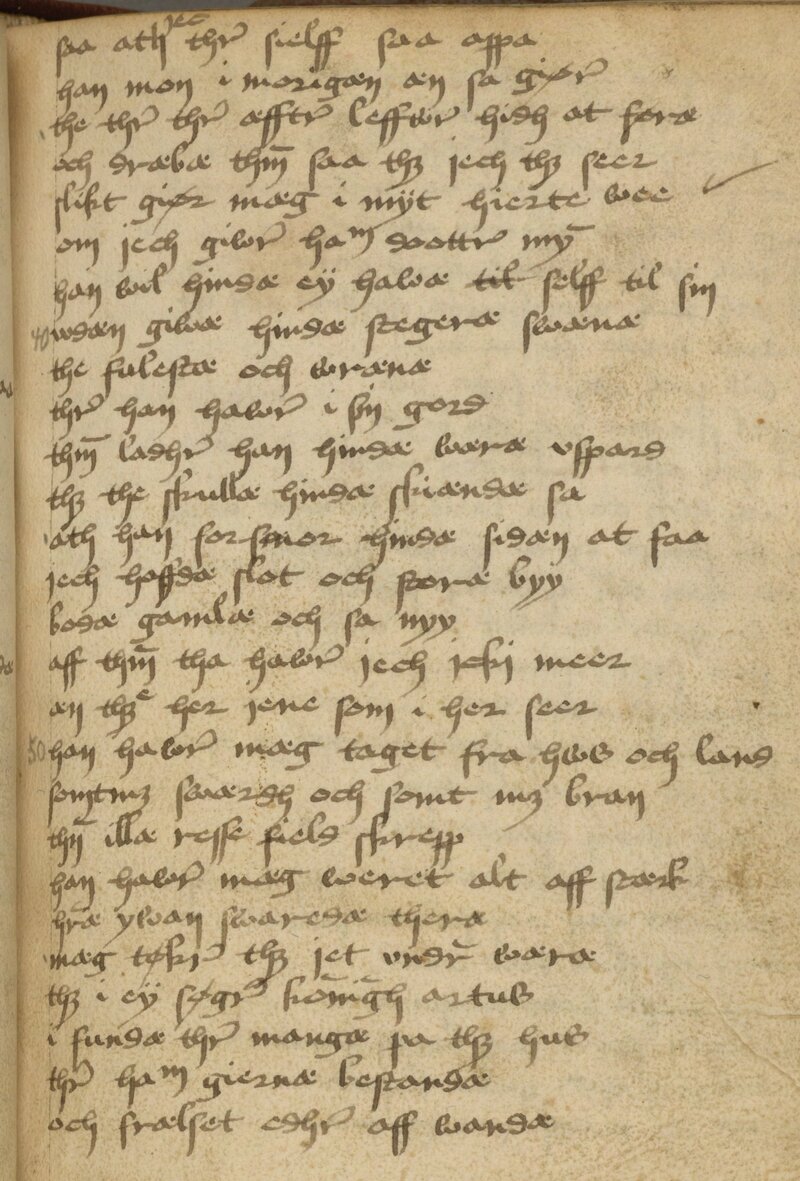 saa ath jec thr̄ sielff saa appa
han mon i morigæn æn sa giør̄
the thr̄ thr̄ æfftr̄ leffwr̄ hidh at foræ
och dræbæ thm̄ saa thz jech thz seer
slikt giør mæg i mÿt hierte wee
om jech giwr̄ haᵐ doottr̄ mȳ
han wil hindæ eÿ hawæ til selff til sin
40 wdæn giwæ hindæ stegeræ swænæ
the fulestæ och wrænæ
thr̄ han hawr̄ i sin gord
thm̄ ladhr̄ han hindæ wæræ vspard
thz the skullæ hindæ skiændæ sa
ath han forsmor hindæ sidæn at faa
jech haffdæ slot och storæ byy
bodæ gamlæ och sa nyy
aff thm̄ tha hawr̄ jech jcki meer
æn thzᵉ her jene som i her seer
50 han hawr̄ mæg taget fra hws och land
somt mz swærdh och somt mz bran
thn̄ illæ resse field skrepp
han hawr̄ mæg weret alt aff stærk
hr̄æ ywan swaredæ theræ
mæg tøkir̄ thz jet vndr̄ wæræ
thz i eÿ søgr̄ kōnīgh artus
i fundæ thr̄ mangæ pa thz hus
thr̄ haᵐ giernæ bestandæ
och frælset edhr̄ aff wandæ